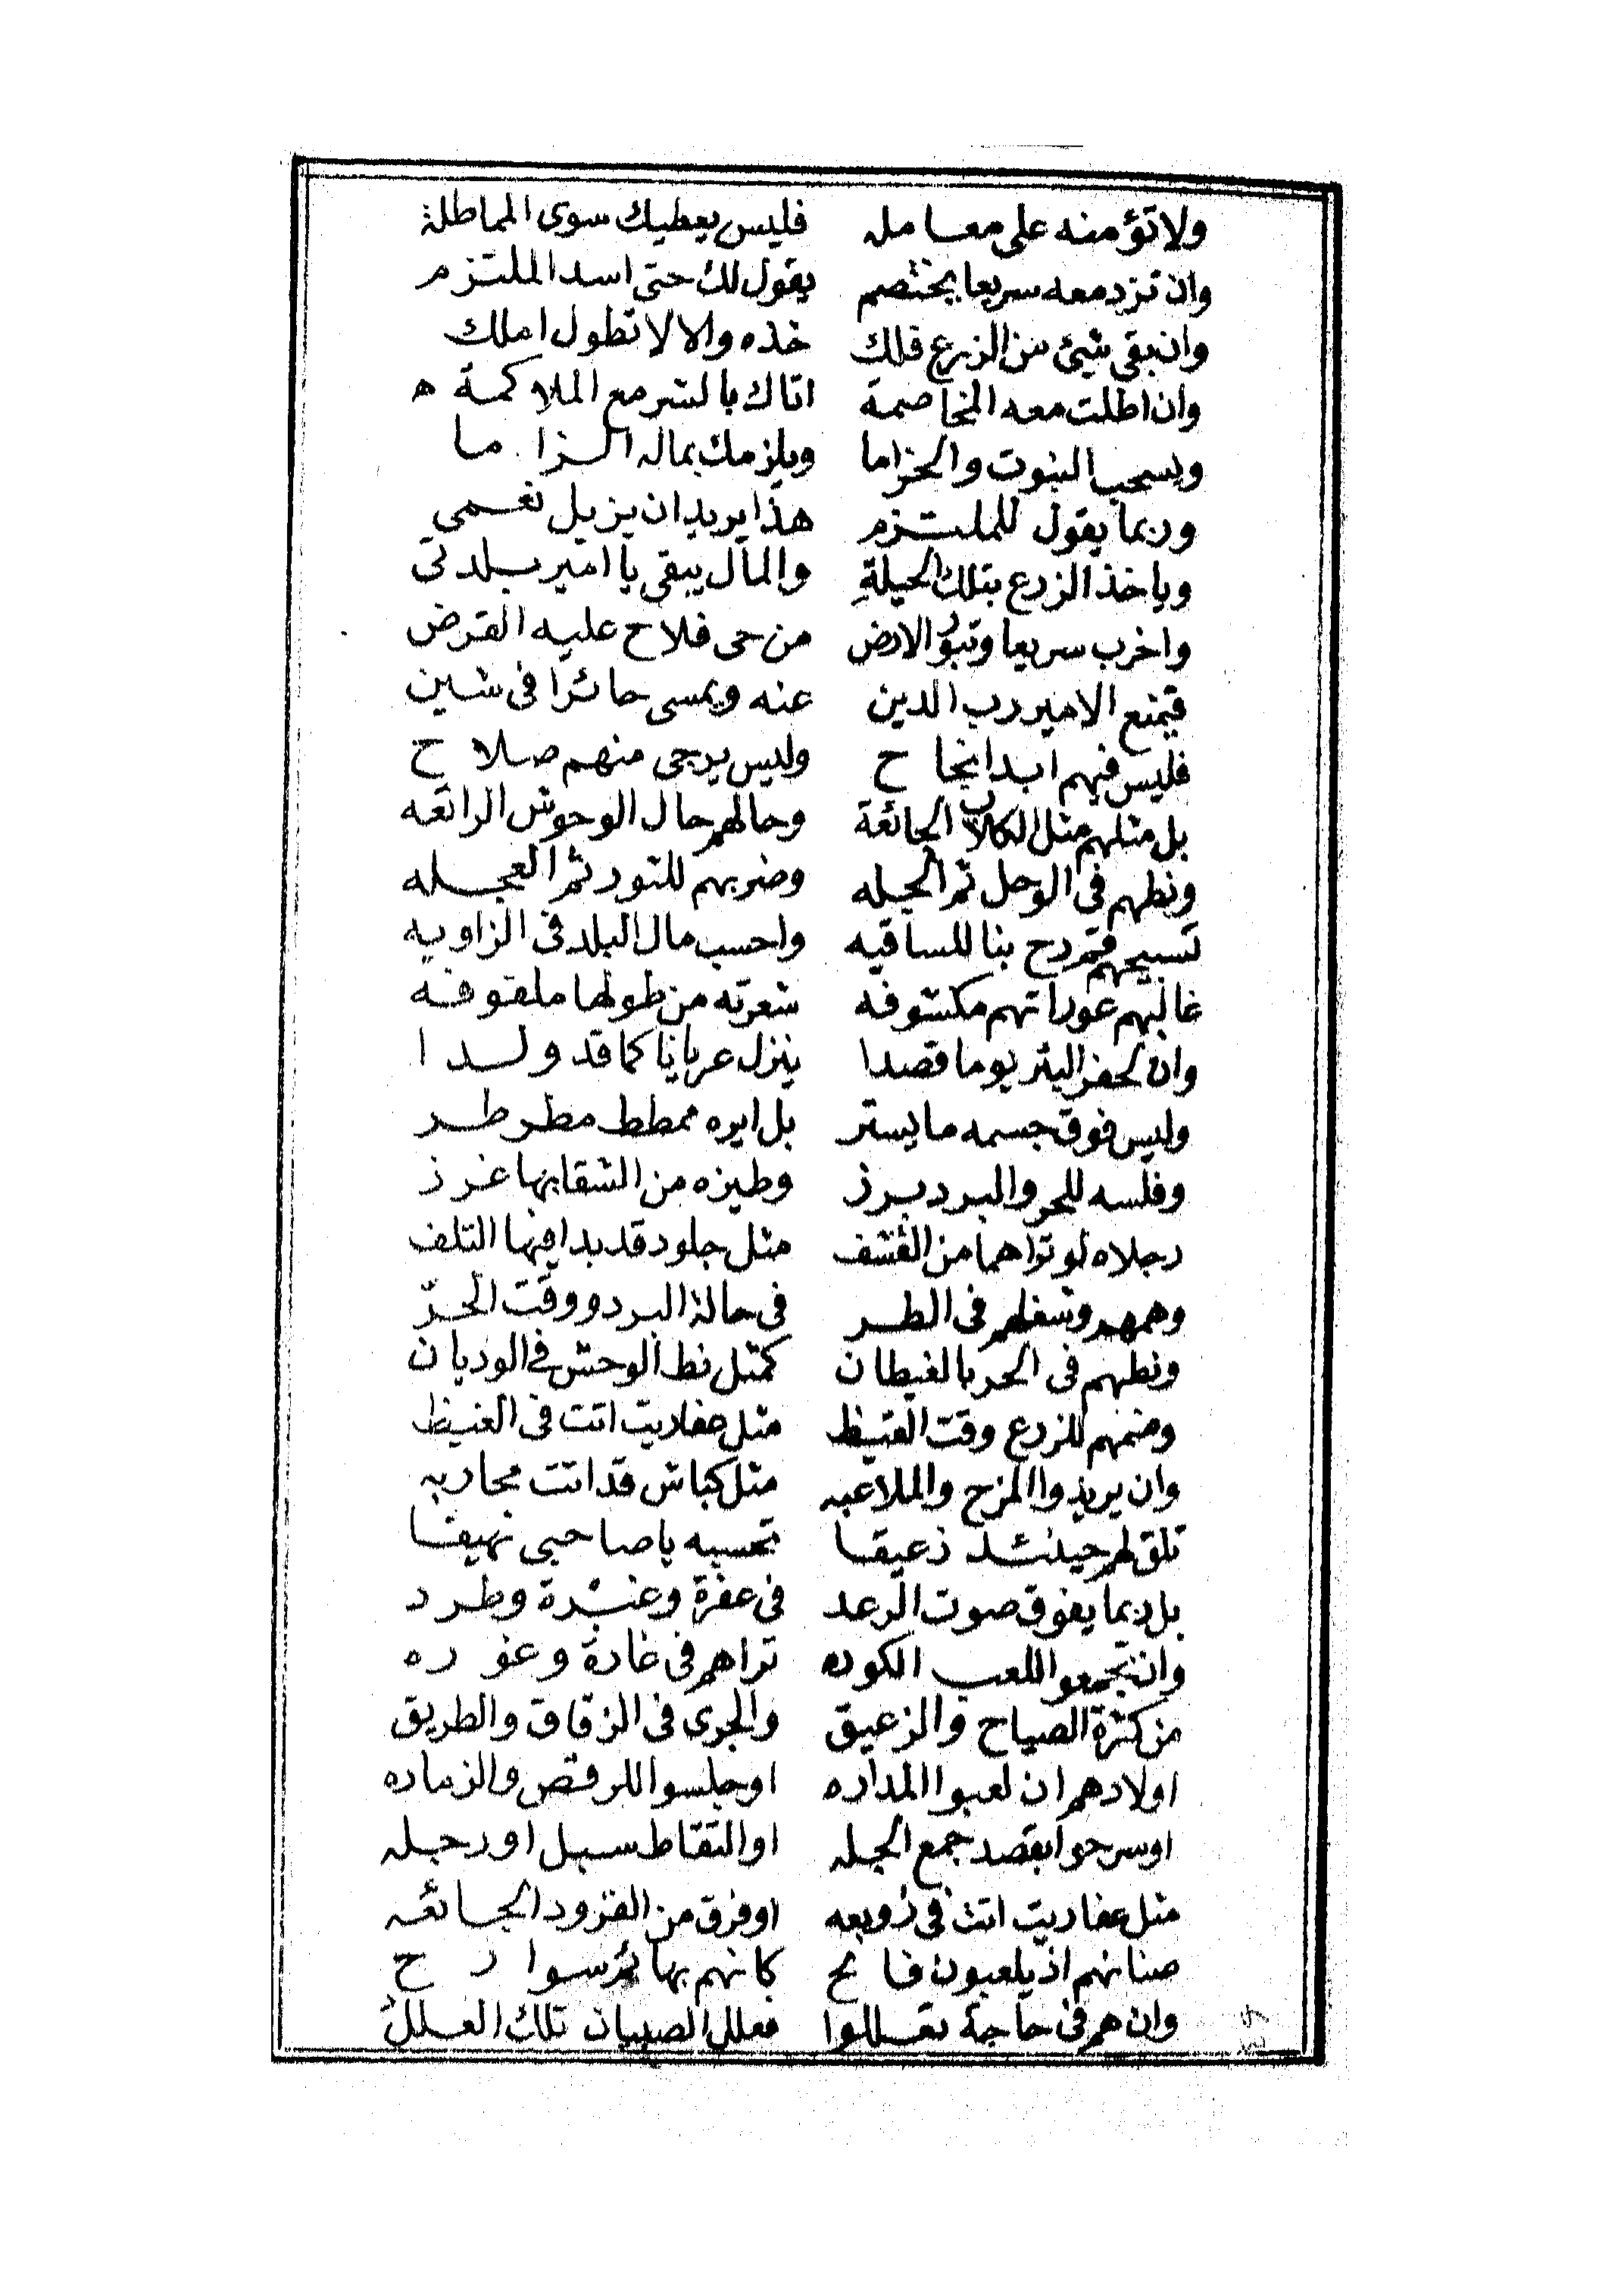 ولا تؤمنه على معامله فليس يعطيك سوى المماطلة
وان ترد معه سريعا يختصم يقول لك حتى اسد الملتزم
وان بقى شيئ من الزرع فلك خذه والا لا تطول املك
وان اطلت معه المخاصمة اتاك بالشر مع الملاكمة ه
ويسحب النبوت والحزاما ويلزمك بماله الزاما
وربما يقول للملتزم هذا يريد ان يزيل نعمي
وياخذ الزرع بتلك الحيلةِ والمال يبقى يا امير بلدتي
واخرب سريعا وتبوُّر الارض من حى فلاح عليه القرض
فيمنع الامير رب الدين عنه ويمسى حائرا فى شين
فليس فيهم ابدا نجاح وليس يرجى منهم صلاح
بل مثلهم مثل الكلاب الجائعة وحالهم حال الوحوش الراتعه
ونطهم فى الوحل ثم الجله وضربهم للثور ثم العجله
تسبيحهم قم درح بنا للساقيه واحسب مال البلد فى الزاويه
غالبهم عوراتهم مكشوفه شعرته من طولها ملفوفه
وان لحفر البئر يوما قصدا ينزل عريانا كما قد ولدا
وليس فوق جسمه ما يستر بل ايره ممطط مطرطر
وفلسه للحر والبرد برز وطيزه من الشقا بها غرز
رجلاه لو تراهما من القشف مثل جلود قد بدا فيها التلف
وهمهم وشغلهم فى الطر فى حالة البرد ووقت الحرّ
ونطهم فى الحر بالغيطان كمثل نط الوحش في الوديان
وضمهم للزرع وقت القيظ مثل عفاريت اتت فى الغيظ
وان يريدوا المزح والملاعبه مثل كباش قد اتت محاربه
تلق لهم حينئد زعيقا تحسبه يا صاحبى نهيقا
بل ربما يفوق صوت الرعد فى عفرة وغبرة وطرد
وان تجمعوا للعب الكوره تراهم فى غارة وعوره
من كثرة الصياح والزعيق والجرى فى الزقاق والطريق
اولادهم ان لعبوا المداره او جلسوا للرقص والزماره
او سرحوا بقصد جمع الجله او التقاط سبل او رجله
مثل عفاريت اتت فى زوبعه او فرق من القرود الجائعه
صنانهم اذ يلعبون فائح كانهم بهائم سوارح
وان هم فى حاجة تعللوا فعلل الصبيان تلك العللُ